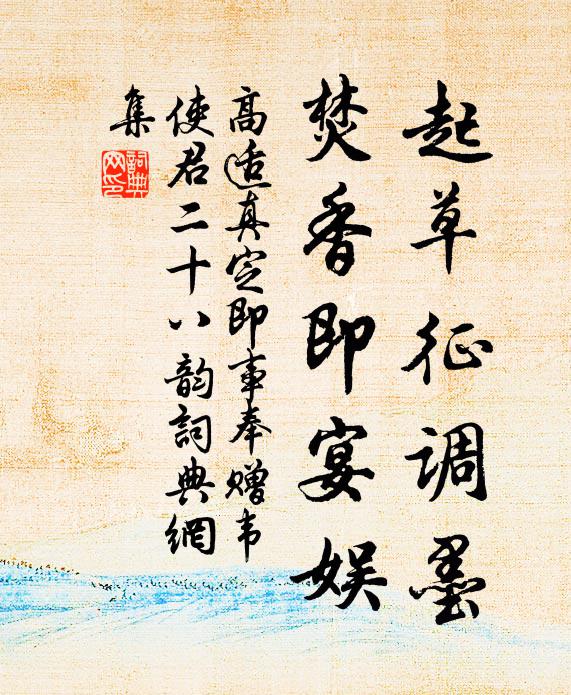 起草征调墨
焚香即宴娱
高适真定即事奉赠韦
使君二十八韵詞典網
集
詞典
网印